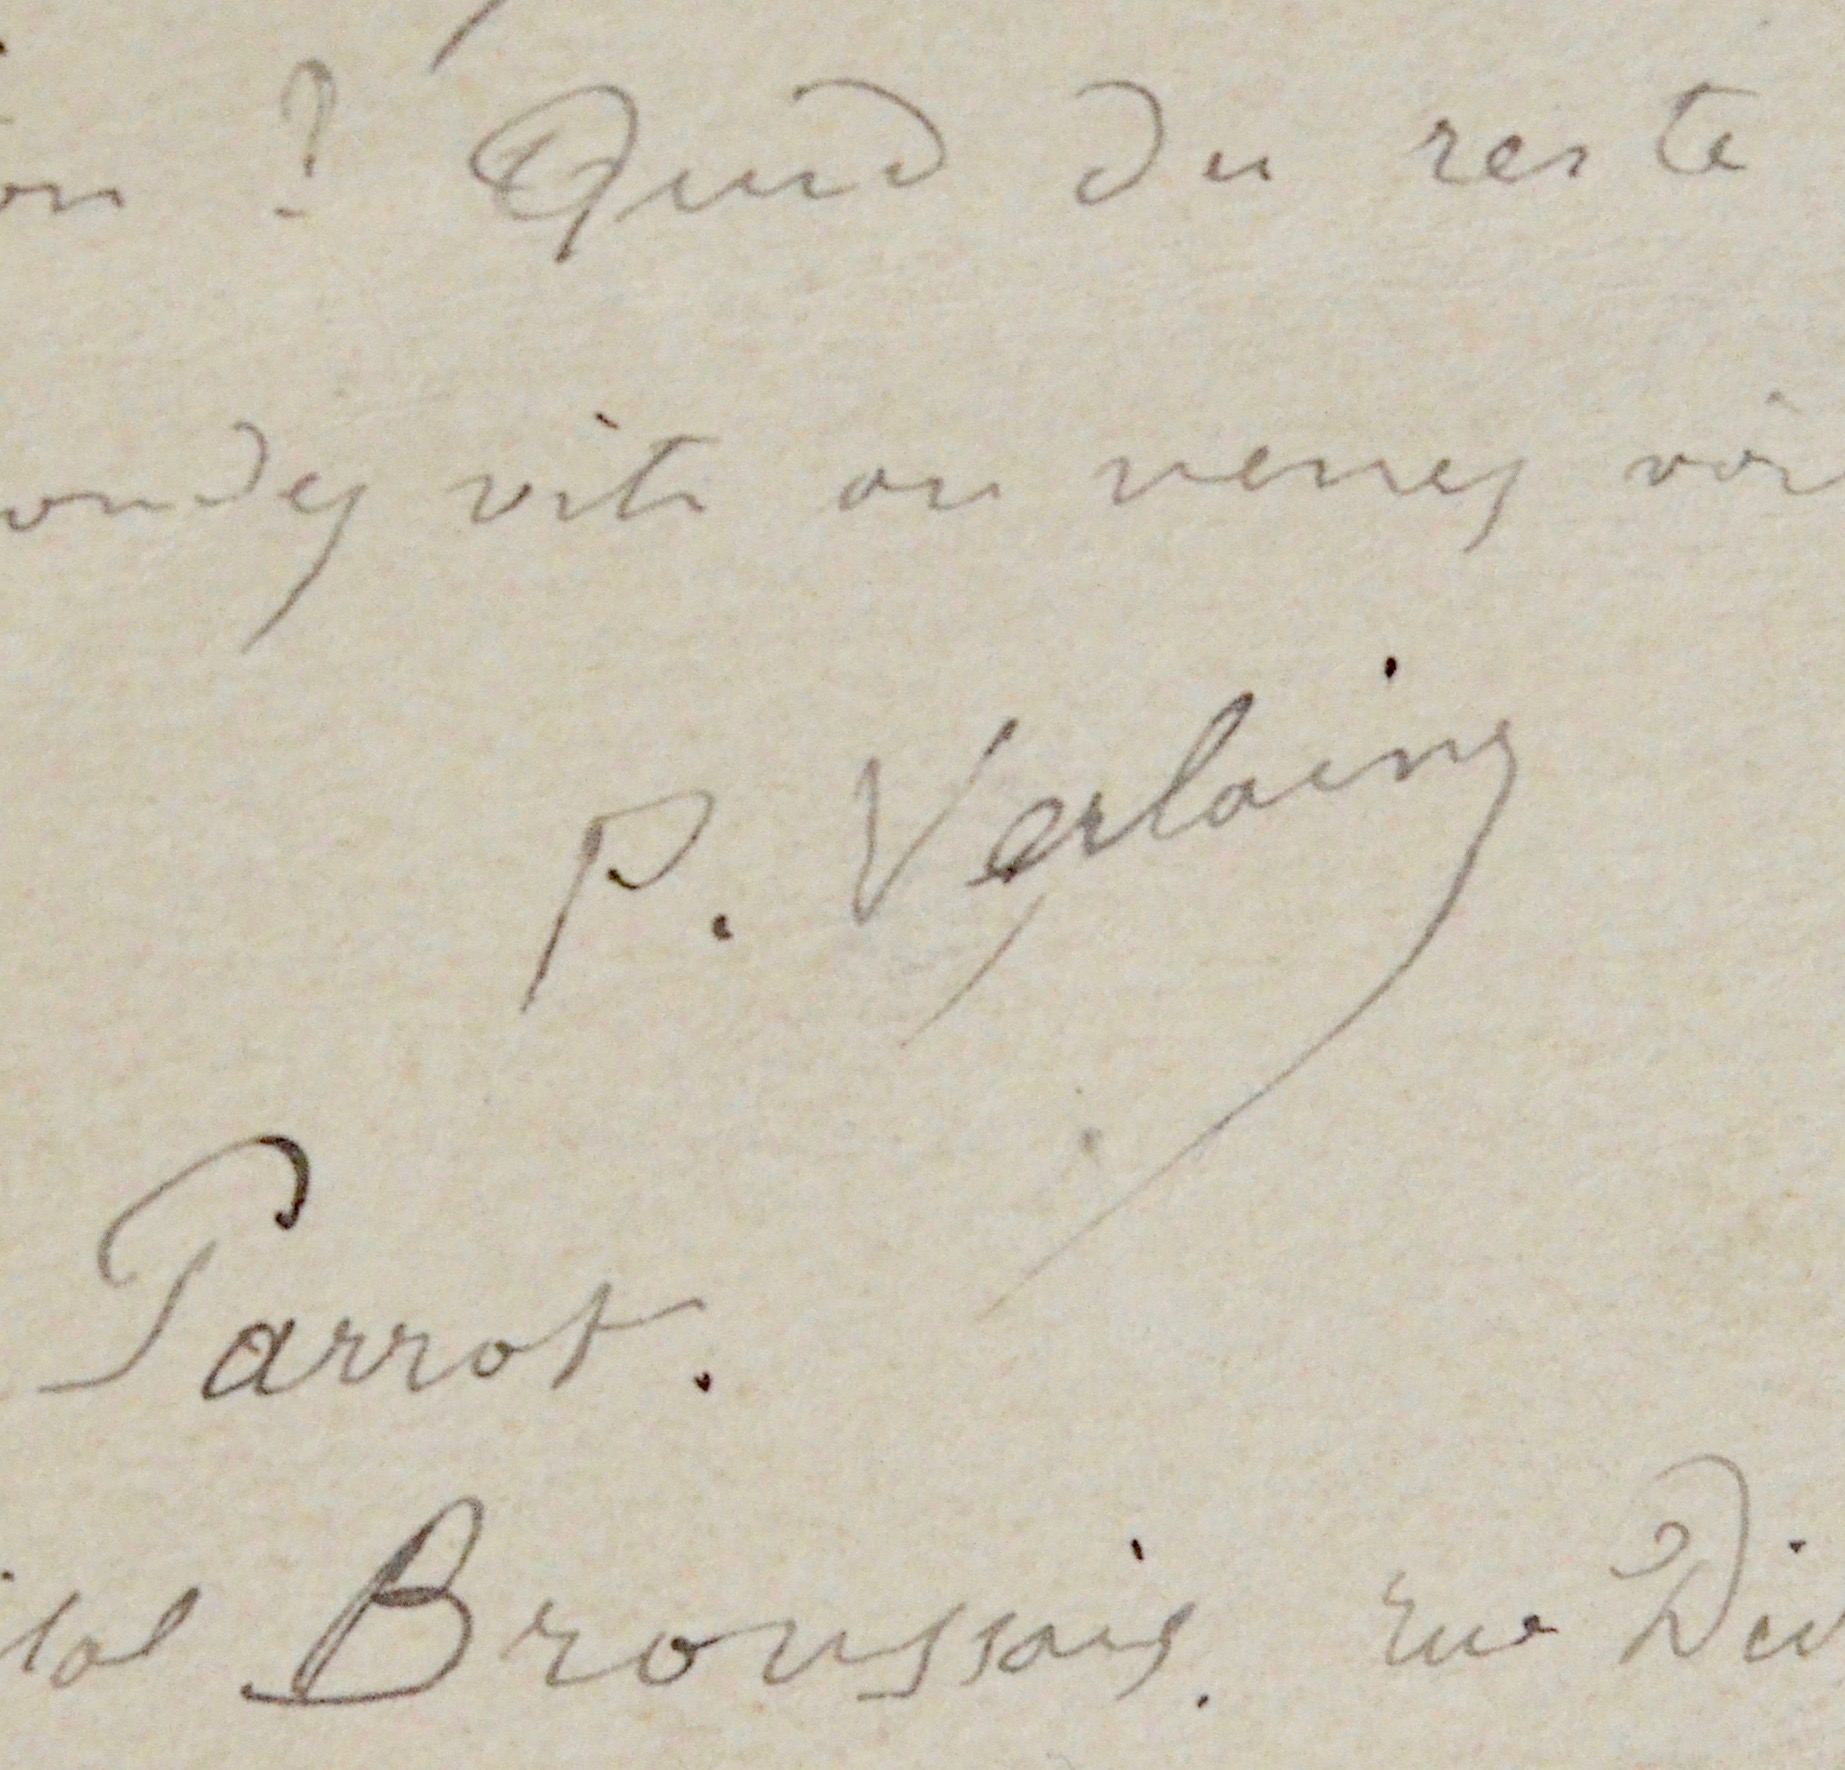 on ? Quid du reste
ondez vite ou venez voir
P. Verlaine
Parrot.
ital Broussais. rue Did